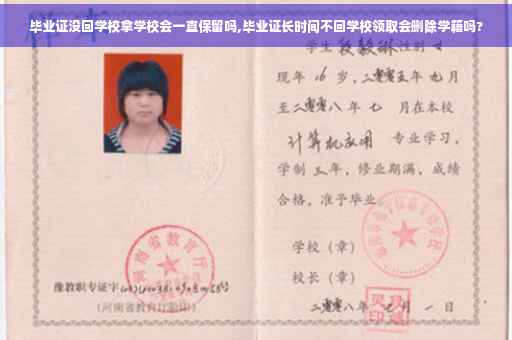 毕业证没回学校拿学校会一直保留吗,毕业证长时间不回学校领取会删除学藉吗?
学生 段毅琳 性别 女
现年 16 岁，二零零五年 九月
至二零零八年 七 月在本校
计算机应用 专业学习，
学制 三年，修业期满，成绩
合格，准予毕业
学校（章）
校长（章）
河南省教育厅
豫教职专证字
(河南省教育厅验印)
二零零八年 七 月 一 日